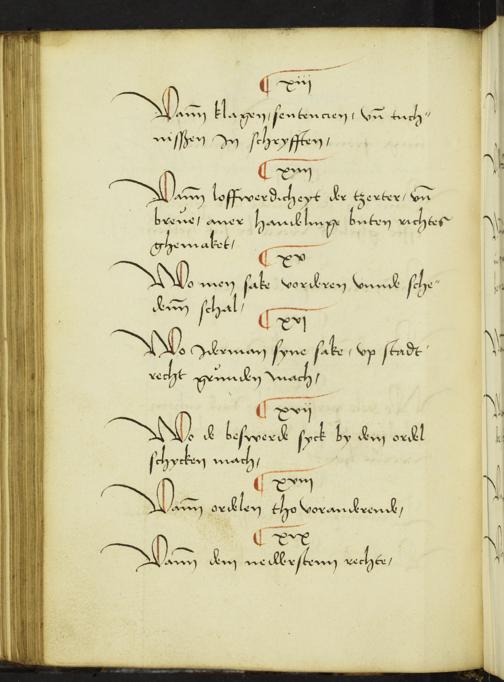 xiii
Vann klagen, sentencien, vn̄ tuch-
nissen in schryfften,
xiiii
Vann loffwerdicheyt der tzerter, vn̄
breue, aver handelinge buten richtes
ghemaket,
xv
Wo men sake vorderen vnnde sche-
denn schal,
xvi
Wo Jderman syne sake, vp stadt
recht grunden mach,
xvii
Wo de beswerde syck by dem ordel
schycken mach,
xviii
Vann ordelen tho voranderende,
xix
Vann dem nedderstenn rechte,